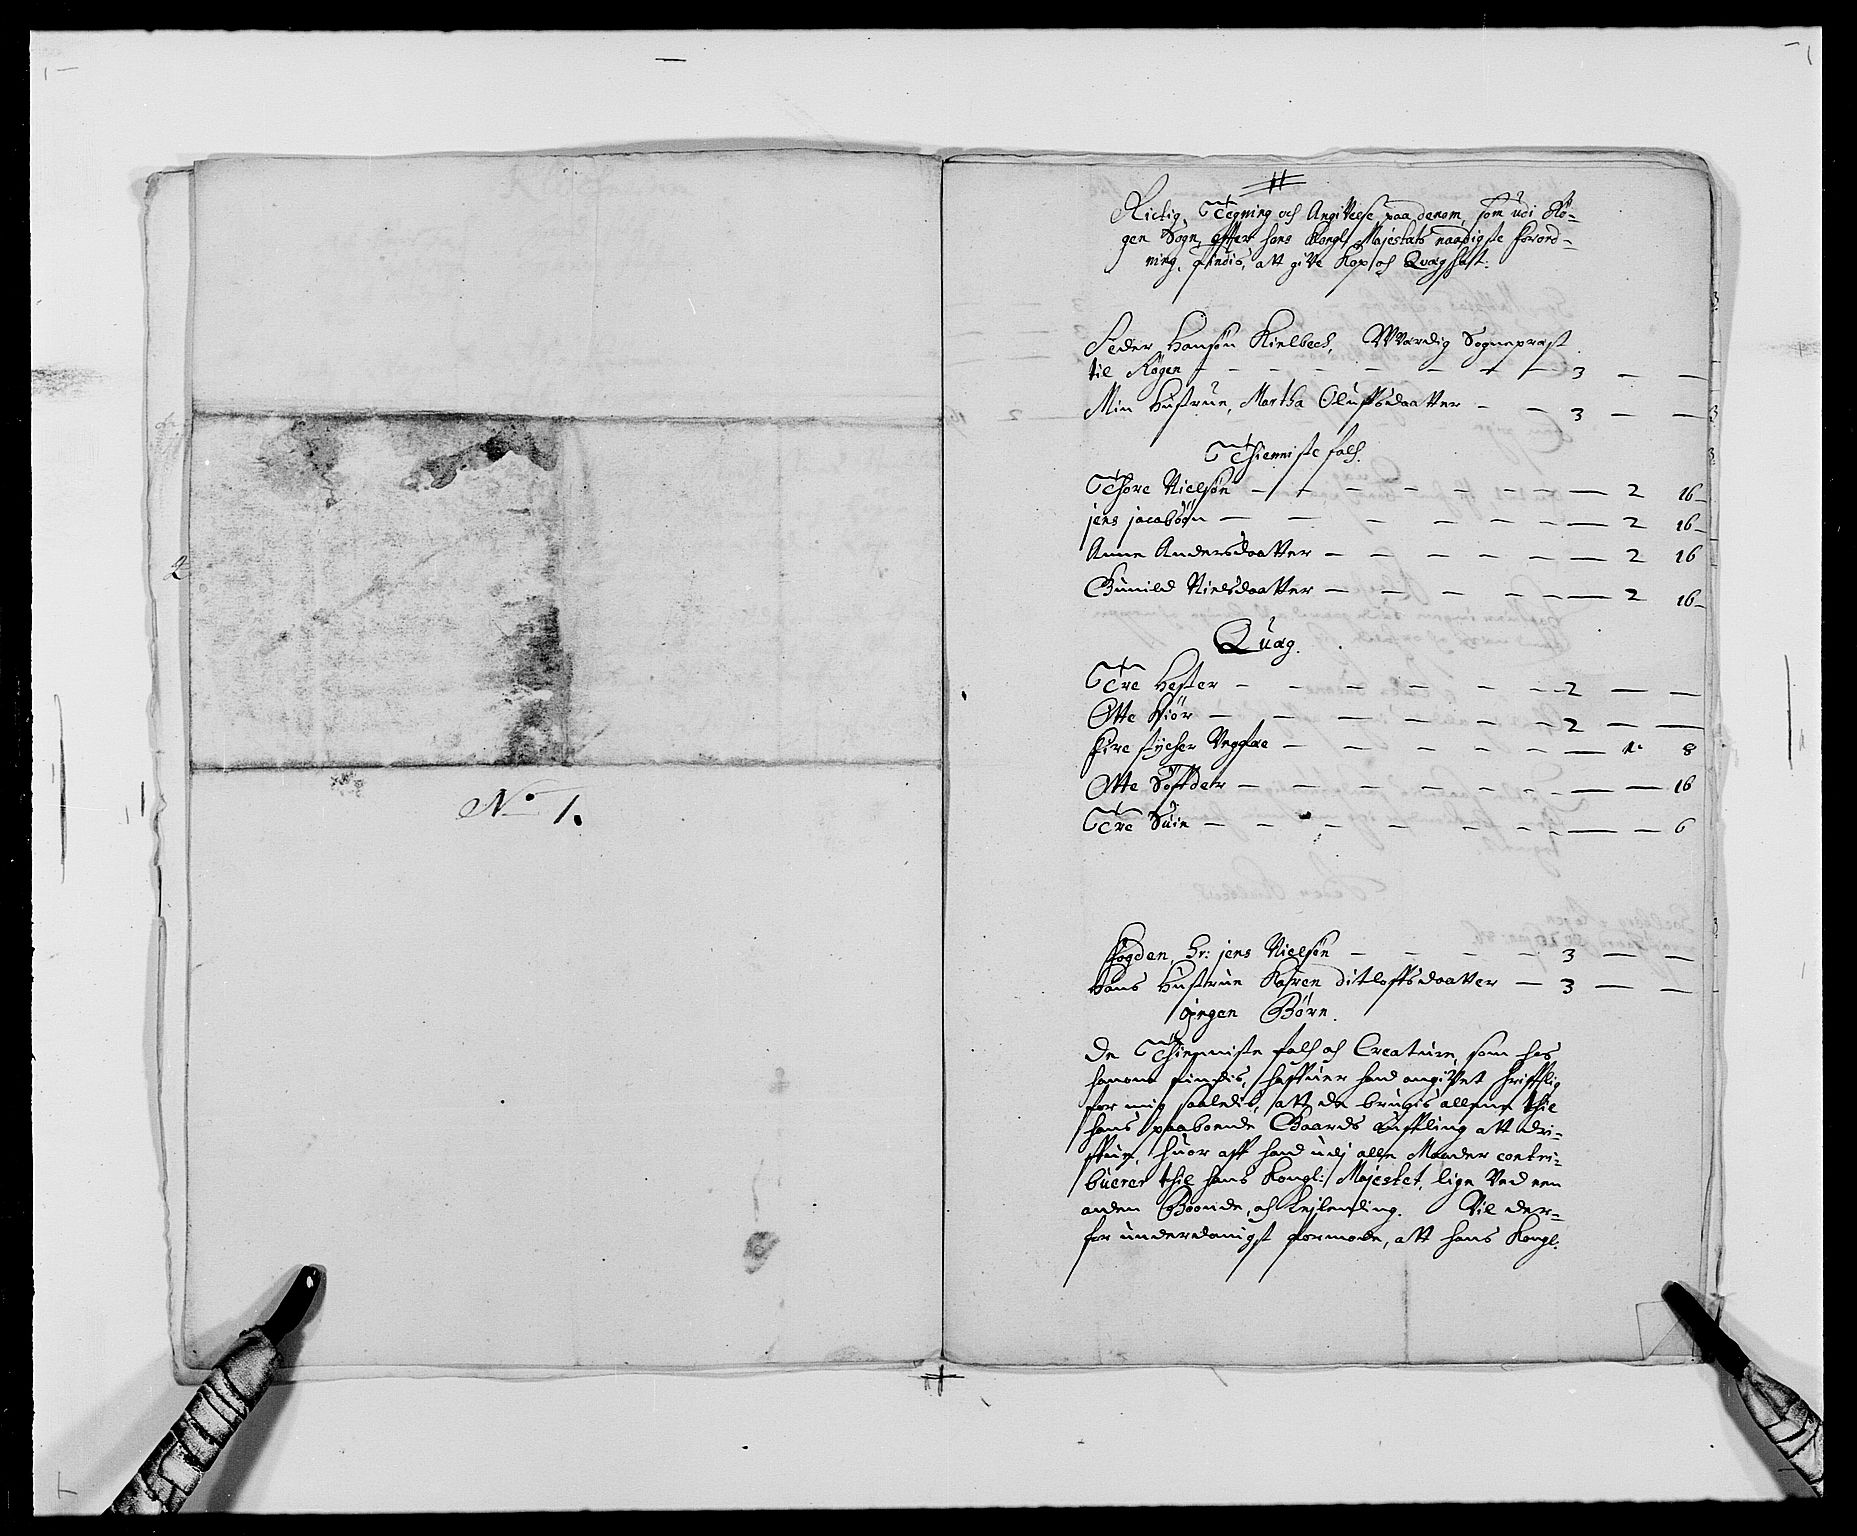 2
No 1.
Rictig Tegning och Angivelse paa denom, som udi Rö-
gen Sogn, effter hans Kongl: Majestets naadigste forord-
ning, findis, att give Kop och Quegskat:
Peder Hansøn Kielbeck, Wværdig Sogneprest
til Røgen - - - - - - - 3 — —
Min Hustrue, Martha Olufsdaatter - - 3 — —
Thienniste folk.
Thore Nielsøn - - - - - - — 2 16
jens jacobsøn - - - - - - — 2 16
Anne Andersdaatter - - - - - — 2 16
Gunild Nielsdaatter - - - - - — 2 16
Quæg.
Tre Hester - - - - - - 2 — —
Otte Kiör - - - - - - 2 — —
fire stycher Ungfæ - - - - - — 1 8
Otte Søffder - - - - - - — — 16
Tre Suin - - - - - - — — 6
Fogden, Sr: jens Nielsøn - - - - 3 — —
Hans Hustrue Karen Ditloffsdaatter - 3 — —
jngen Børn.
De Thienniste folk och Creature, som hos
hanom findis, haffuer hand angivet skrifftlig
for mig saaledis, att de brugis allene thil
hans paaboende Gaards aufling att dri-
ffue, huor aff hand udj alle Maader contri-
buerer thil hans Kongl: Majestet, lige Ved een
anden Boonde, och Lejlending. Vil der-
for underdanigst formode, att hans Kongl.